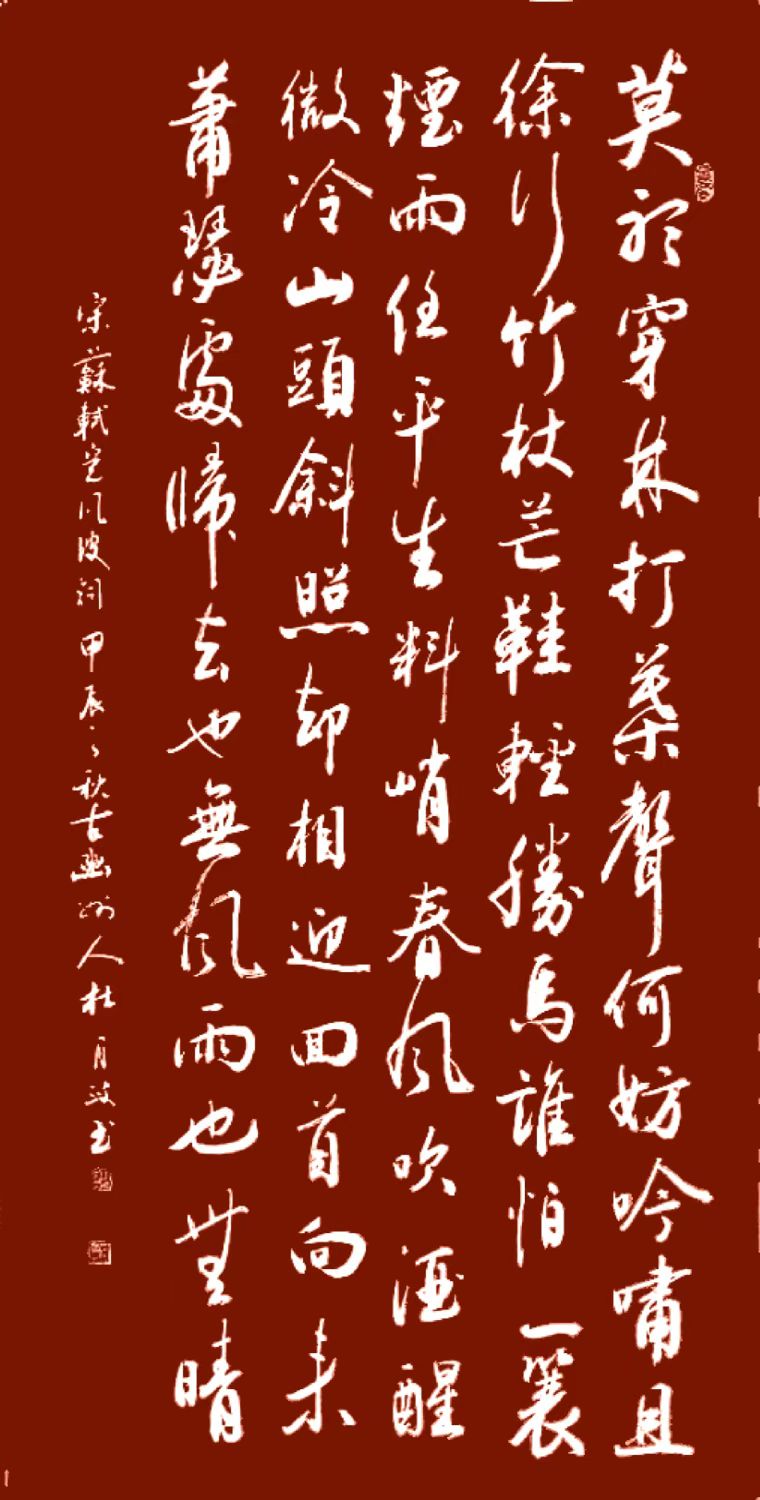 莫聽穿林打葉聲何妨吟嘯且
徐行竹杖芒鞋輕勝馬誰怕一蓑
煙雨任平生料峭春風吹酒醒
微冷山頭斜照却相迎回首向来
蕭瑟處歸去也無風雨也無晴
宋蘇軾定風波詞甲辰之秋古幽州人杜月书